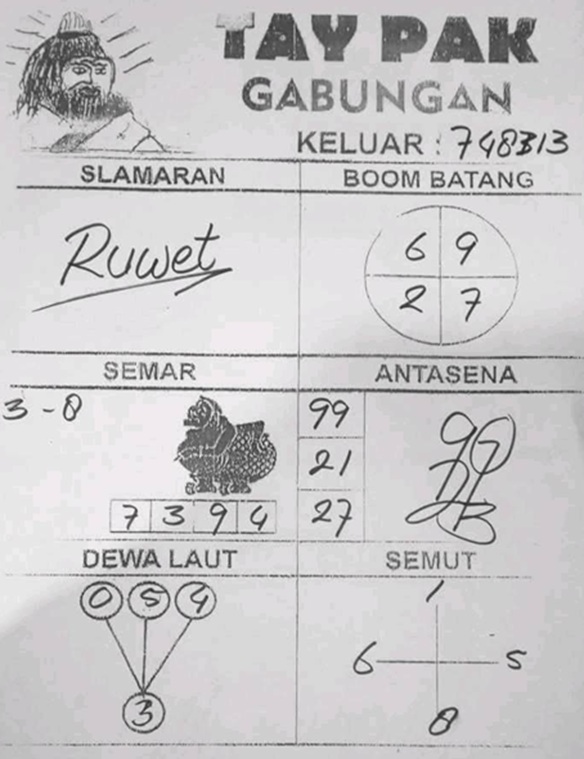 TAY PAK
GABUNGAN
KELUAR : 748313
SLAMARAN
BOOM BATANG
Ruwet
6 9
2 7
SEMAR
ANTASENA
3 - 8
99
21
27
7 3 9 4
DEWA LAUT
SEMUT
0 5 9
3
1
6 5
8